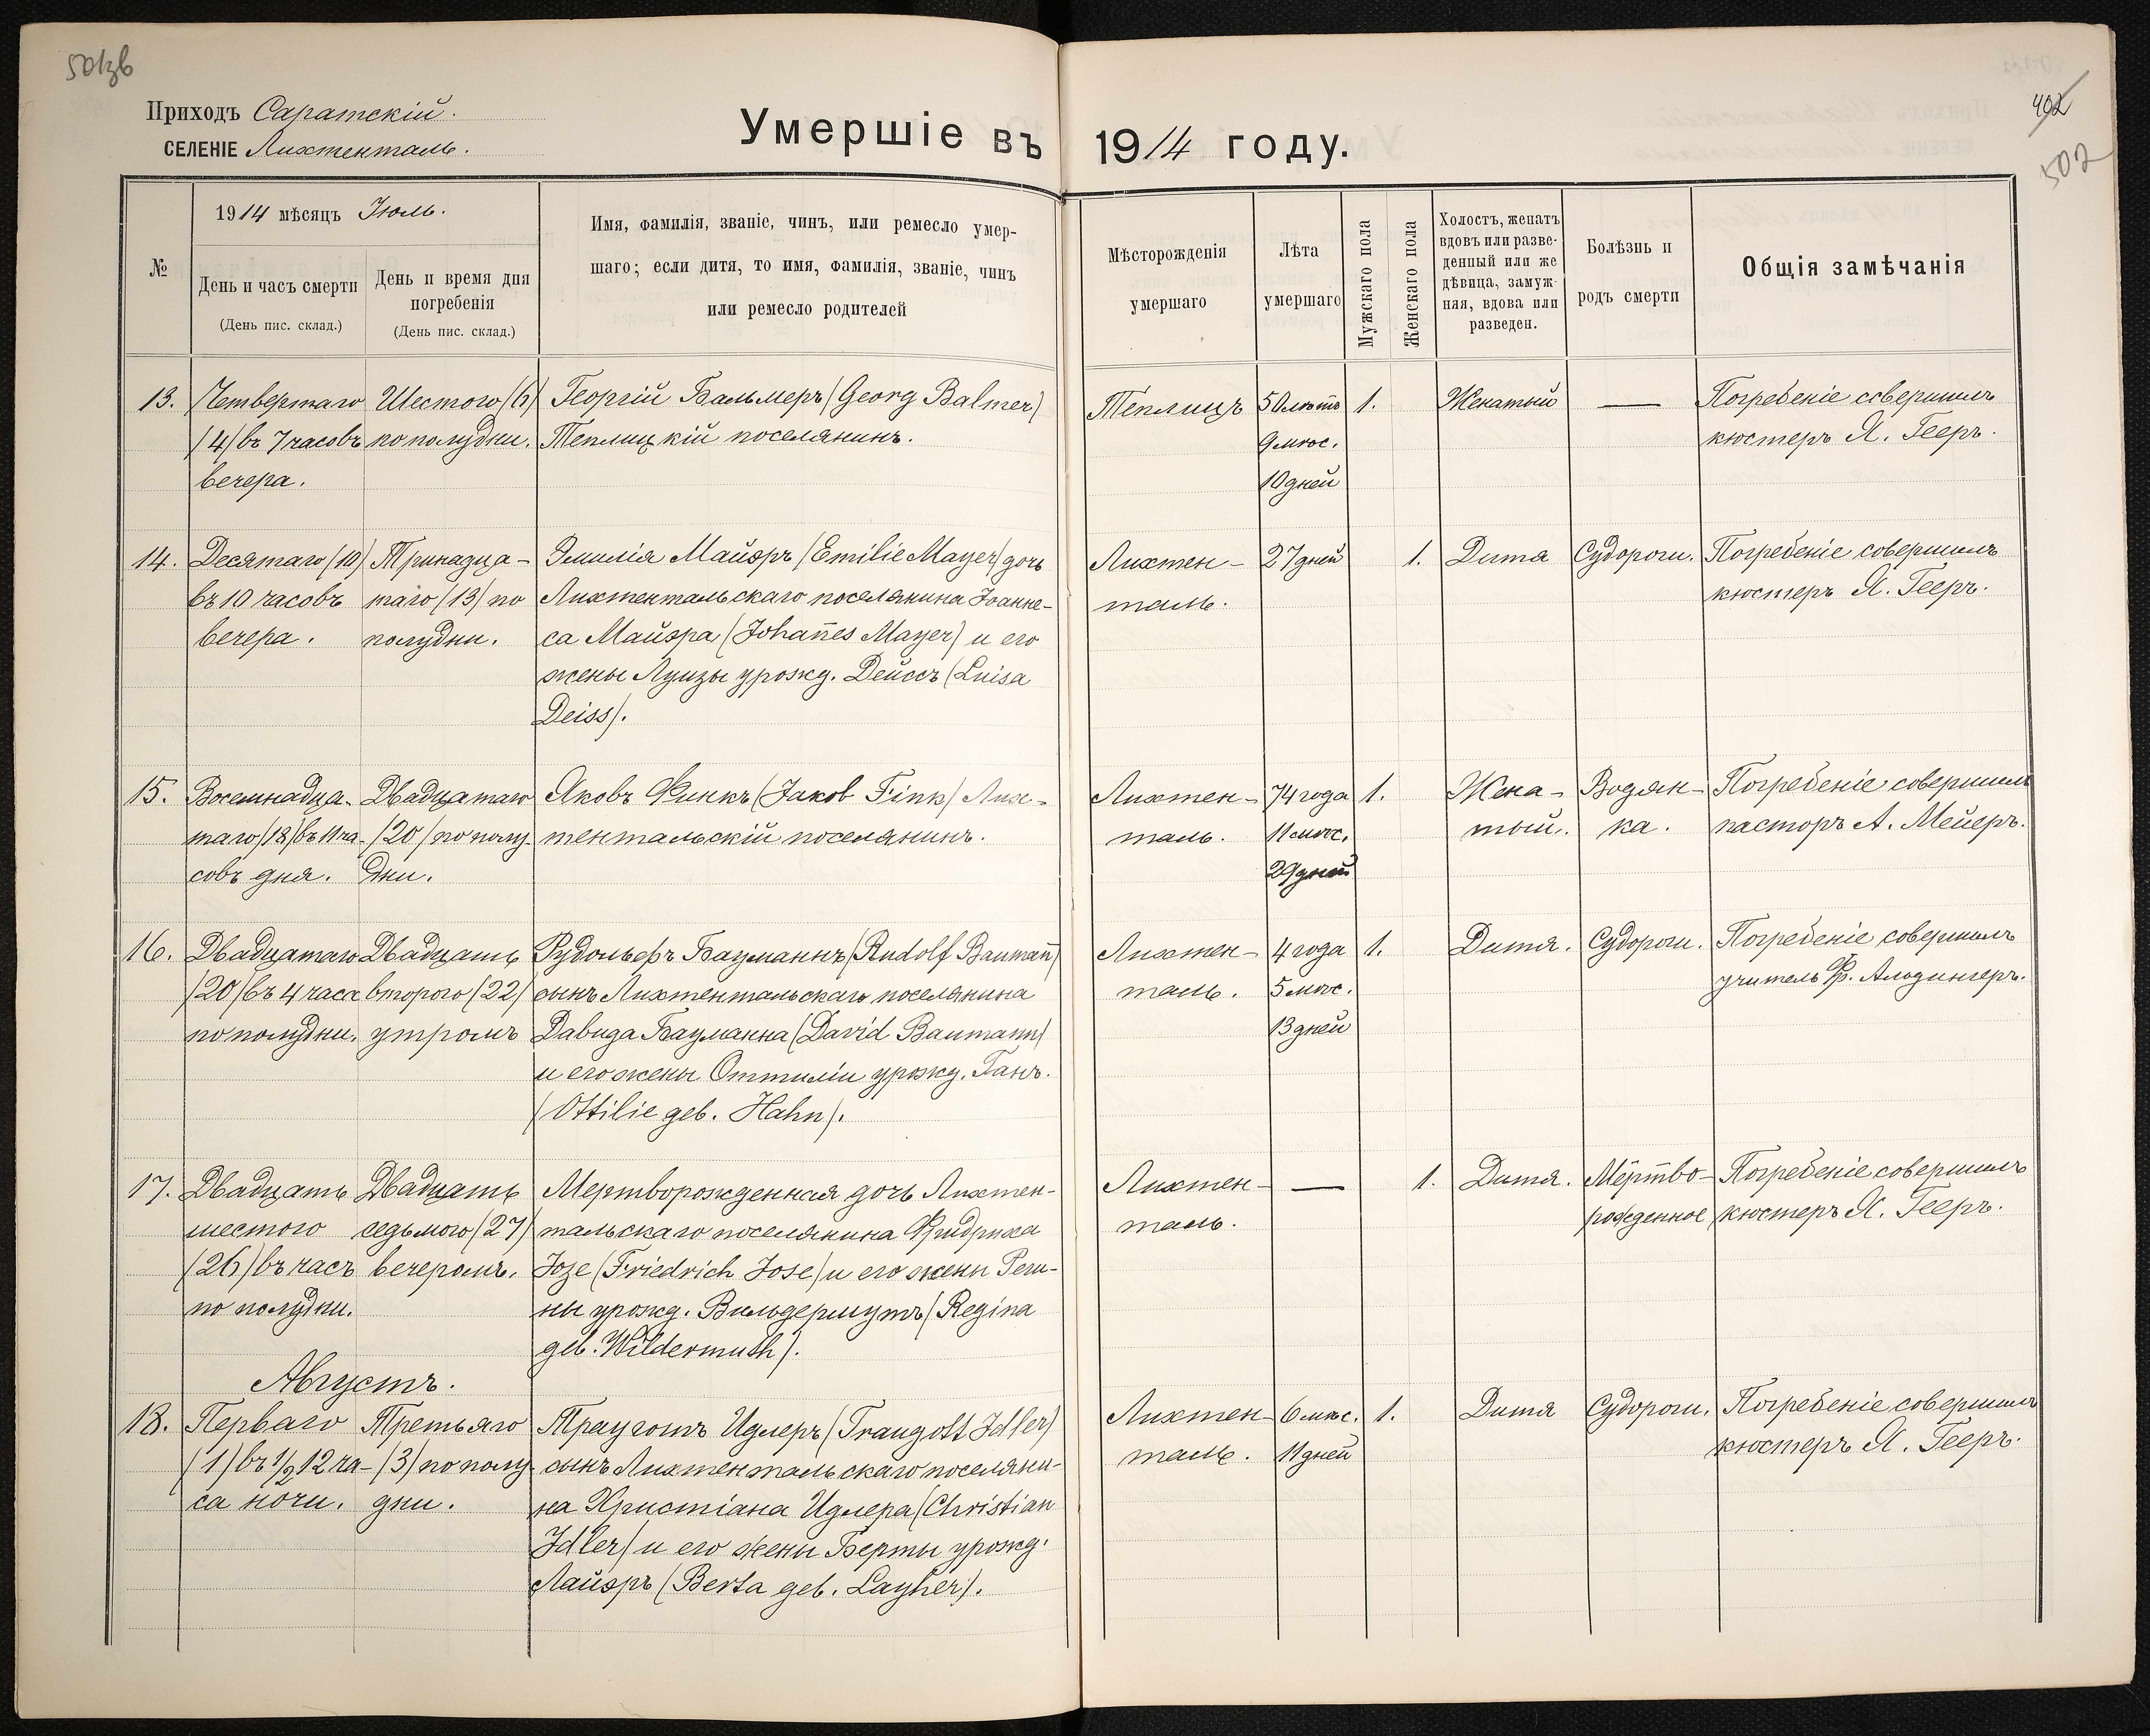 501зв
Приходъ Саратскій.
СЕЛЕНІЕ Лихтенталь.
Умершіе въ 1914 году.
402
502
№
1914 мѣсяцъ Іюль.
День и часъ смерти
(День пис. склад.)
День и время дня
погребенія
(День пис. склад.)
Имя, фамилія, званіе, чинъ, или ремесло умер-
шаго; если дитя, то имя, фамилія, званіе, чинъ
или ремесло родителей
Мѣсторожденія
умершаго
Лѣта
умершаго
Мужскаго пола
Женскаго пола
Холостъ, женатъ
вдовъ или разве-
денный или же
дѣвица, замуж-
няя, вдова или
разведен.
Болѣзнь и
родъ смерти
Общія замѣчанія
13.
Четвертаго
(4) въ 7 часовъ
вечера.
Шестого (6)
по полудни.
Георгій Бальмеръ (Georg Balmer)
Теплицкій поселянинъ.
Теплицъ
50 лѣтъ
9 мѣс.
10 дней
1.
Женатый
—
Погребеніе совершилъ
кюстеръ Я. Гееръ.
14.
Десятаго (10)
въ 10 часовъ
вечера.
Тринадца-
таго (13) по
полудни.
Эмилія Майэръ (Emilie Mayer) дочь
Лихтентальскаго поселянина Іоанне-
са Майэра (Johan̄es Mayer) и его
жены Луизы урожд. Дейссъ (Luisa
Deiss).
Лихтен-
таль.
27 дней
1.
Дитя
Судороги.
Погребеніе совершилъ
кюстеръ Я. Гееръ.
15.
Восемнадца-
таго (18) въ 11 ча-
совъ дня.
Двадцатаго
(20) по полу-
дни.
Яковъ Финкъ (Jakob Fink) Лих-
тентальскій поселянинъ.
Лихтен-
таль.
74 года
11 мѣс.
29 дней
1.
Жена-
тый.
Водян-
ка.
Погребеніе совершилъ
пасторъ А. Мейеръ.
16.
Двадцатаго
(20) въ 4 часа
по полудни.
Двадцать
второго (22)
утромъ
Рудольфъ Бауманнъ (Rudolf Bauman̄)
сынъ Лихтентальскаго поселянина
Давида Бауманна (David Baumann)
и его жены Оттиліи урожд. Ганъ.
(Ottilie geb. Hahn).
Лихтен-
таль.
4 года
5 мѣс.
13 дней
1.
Дитя.
Судороги.
Погребеніе совершилъ
учитель Ф. Альдингеръ.
17.
Двадцать
шестого
(26) въ часъ
по полудни.
Двадцать
седьмого (27)
вечеромъ.
Мертворожденная дочь Лихтен-
тальскаго поселянина Фридриха
Іозе (Friedrich Jose) и его жены Реги-
ны урожд. Вильдермутъ (Regina
geb. Wildermuth).
Лихтен-
таль.
—
1.
Дитя.
Мёртво-
рожденное
Погребеніе совершилъ
кюстеръ Я. Гееръ.
Августъ.
18.
Перваго
(1) въ ½ 12 ча-
са ночи.
Третьяго
(3) по полу-
дни.
Трауготтъ Идлеръ (Traugott Idler)
сынъ Лихтентальскаго поселяни-
на Христіана Идлера (Christian
Idler) и его жены Берты урожд.
Лайэръ (Berta geb. Layher).
Лихтен-
таль.
6 мѣс.
11 дней
1.
Дитя
Судороги.
Погребеніе совершилъ
кюстеръ Я. Гееръ.